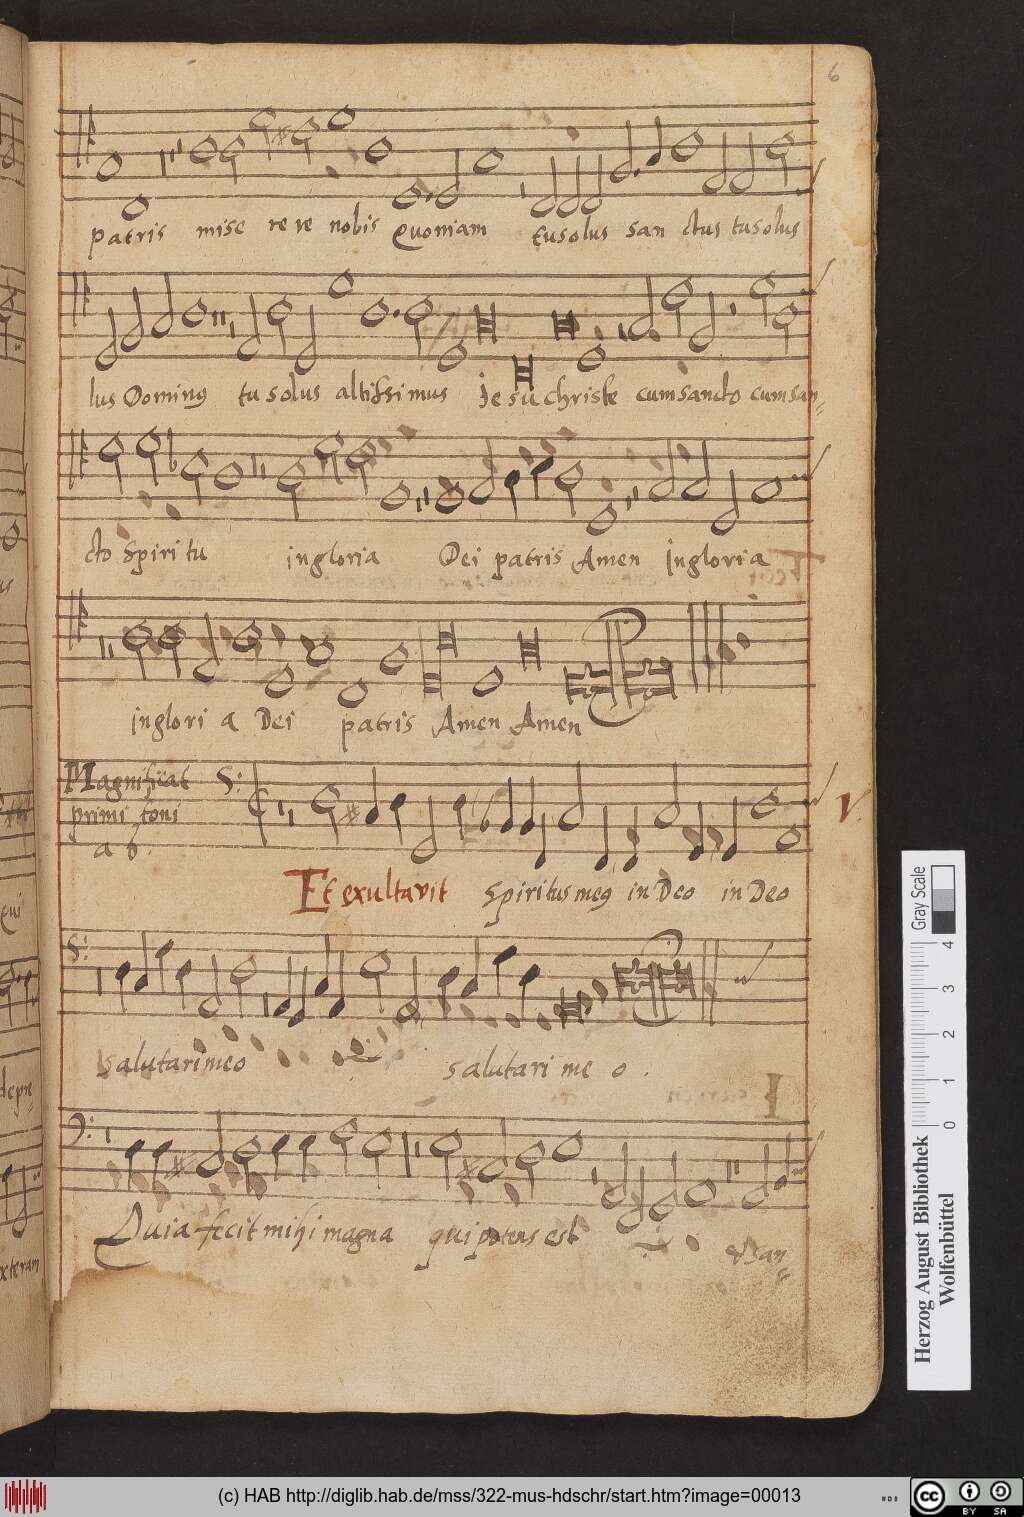 6
patris mise re re nobis Quoniam tu solus san ctus tu solus
lus Dominꝰ tu solus altissimus Je su christe cum sancto cum san=
cto spiri tu in gloria Dei patris Amen In gloria
In glori a Dei patris Amen Amen
Magnificat
primi toni
a 6.
V.
Et exultavit Spiritus meꝰ in Deo in Deo
salutari meo salutari me o.
Quia fecit mihi magna qui potens est San=
Qui
xteram
Gray Scale
0 1 2 3 4
Herzog August Bibliothek
Wolfenbüttel
(c) HAB http://diglib.hab.de/mss/322-mus-hdschr/start.htm?image=00013
HAB
cc BY SA